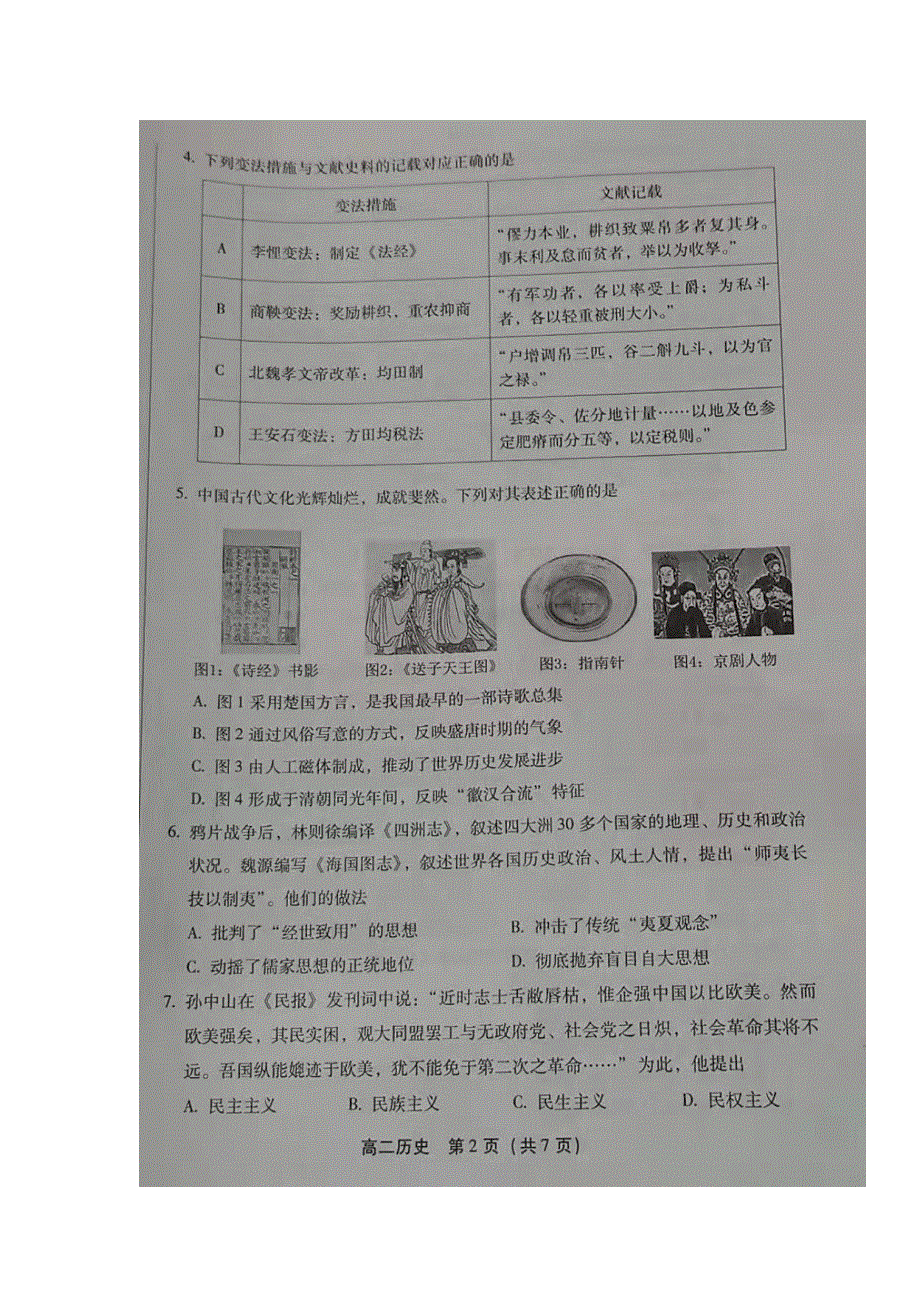 4. 下列变法措施与文献史料的记载对应正确的是
变法措施 文献记载
A 李悝变法：制定《法经》 “僇力本业，耕织致粟帛多者复其身。
事末利及怠而贫者，举以为收孥。”
B 商鞅变法：奖励耕织，重农抑商 “有军功者，各以率受上爵；为私斗
者，各以轻重被刑大小。”
C 北魏孝文帝改革：均田制 “户增调帛三匹，谷二斛九斗，以为官
之禄。”
D 王安石变法：方田均税法 “县委令、佐分地计量……以地及色参
定肥瘠而分五等，以定税则。”
5. 中国古代文化光辉灿烂，成就斐然。下列对其表述正确的是
图1：《诗经》书影 图2：《送子天王图》 图3：指南针 图4：京剧人物
A. 图1采用楚国方言，是我国最早的一部诗歌总集
B. 图2通过风俗写意的方式，反映盛唐时期的气象
C. 图3由人工磁体制成，推动了世界历史发展进步
D. 图4形成于清朝同光年间，反映“徽汉合流”特征
6. 鸦片战争后，林则徐编译《四洲志》，叙述四大洲30多个国家的地理、历史和政治
状况。魏源编写《海国图志》，叙述世界各国历史政治、风土人情，提出“师夷长
技以制夷”。他们的做法
A. 批判了“经世致用”的思想 B. 冲击了传统“夷夏观念”
C. 动摇了儒家思想的正统地位 D. 彻底抛弃盲目自大思想
7. 孙中山在《民报》发刊词中说：“近时志士舌敝唇枯，惟企强中国以比欧美。然而
欧美强矣，其民实困，观大同盟罢工与无政府党、社会党之日炽，社会革命其将不
远。吾国纵能媲迹于欧美，犹不能免于第二次之革命……”为此，他提出
A. 民主主义 B. 民族主义 C. 民生主义 D. 民权主义
高二历史 第2页（共7页）